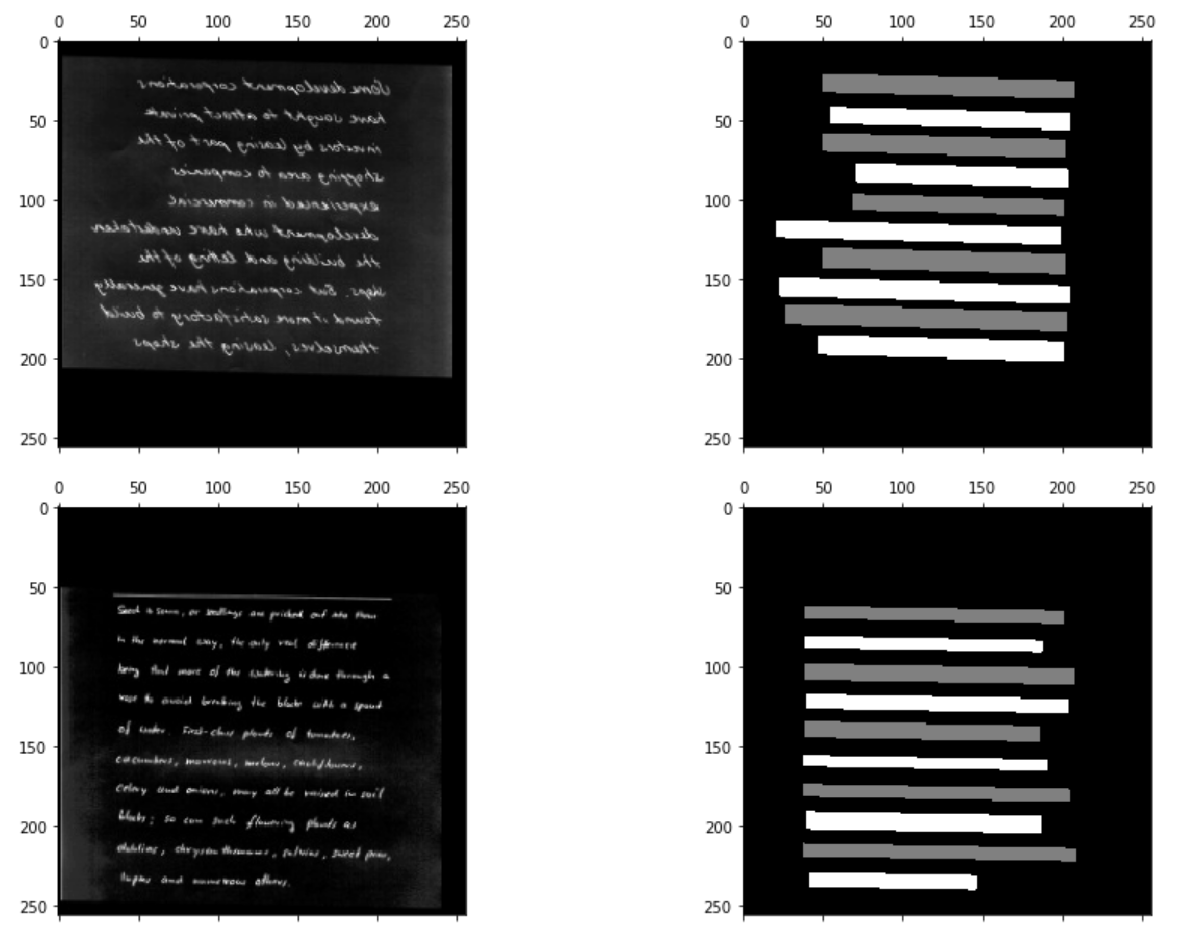 0 50 100 150 200 250
0 50 100 150 200 250
0
50
100
150
200
250
Some development corporations
have sought to attract private
investors by leasing part of the
shopping area to companies
experienced in commercial
development who have undertaken
the building and letting of the
shops. But corporations have generally
found it more satisfactory to build
themselves, leasing the shops
0
50
100
150
200
250
0 50 100 150 200 250
0 50 100 150 200 250
0
50
100
150
200
250
Seed is sown, or seedlings are pricked out into them
in the normal way, the only real difference
being that most of the watering is done through a
rose to avoid breaking the blocks with a spout
of water. First-class plants of tomatoes,
cucumbers, marrows, melons, cauliflowers,
celery and onions, may all be raised in soil
blocks; so can such flowering plants as
dahlias, chrysanthemums, salvias, sweet peas,
and numerous others.
0
50
100
150
200
250